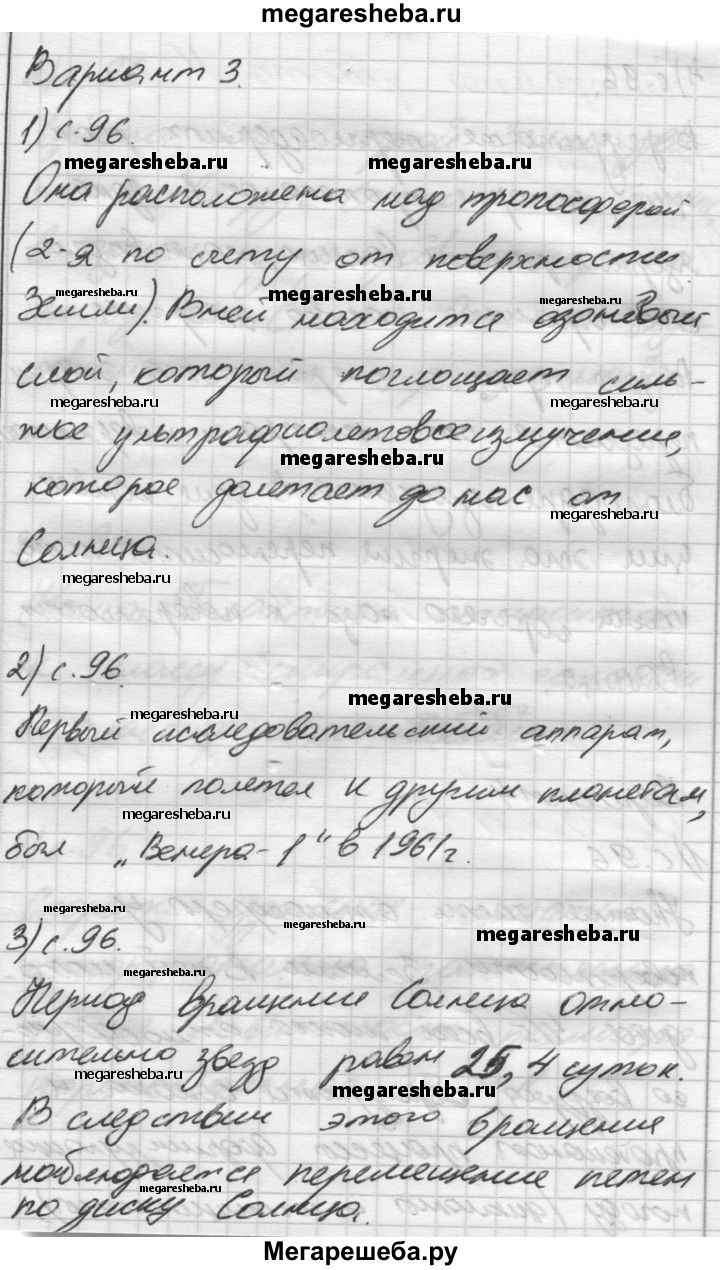 megaresheba.ru
Вариант 3.
1) с.96.
megaresheba.ru megaresheba.ru
Она расположена над тропосферой
(2-я по счету от поверхности
megaresheba.ru megaresheba.ru megaresheba.ru
Земли). В ней находится озоновый
слой, который поглощает силь-
megaresheba.ru megaresheba.ru
ное ультрафиолетовое излучение,
megaresheba.ru
которое долетает до нас от
megaresheba.ru
Солнца.
megaresheba.ru
2) с.96.
megaresheba.ru
megaresheba.ru
Первый исследовательский аппарат,
который полетел к другим планетам,
megaresheba.ru
был „Венера-1“ в 1961г.
megaresheba.ru megaresheba.ru megaresheba.ru
3) с.96.
megaresheba.ru
Период вращения Солнца отно-
сительно звезд равен 25,4 суток.
megaresheba.ru megaresheba.ru
В следствии этого вращения
наблюдается перемещение петен
megaresheba.ru
по диску Солнца.
Мегарешеба.ру